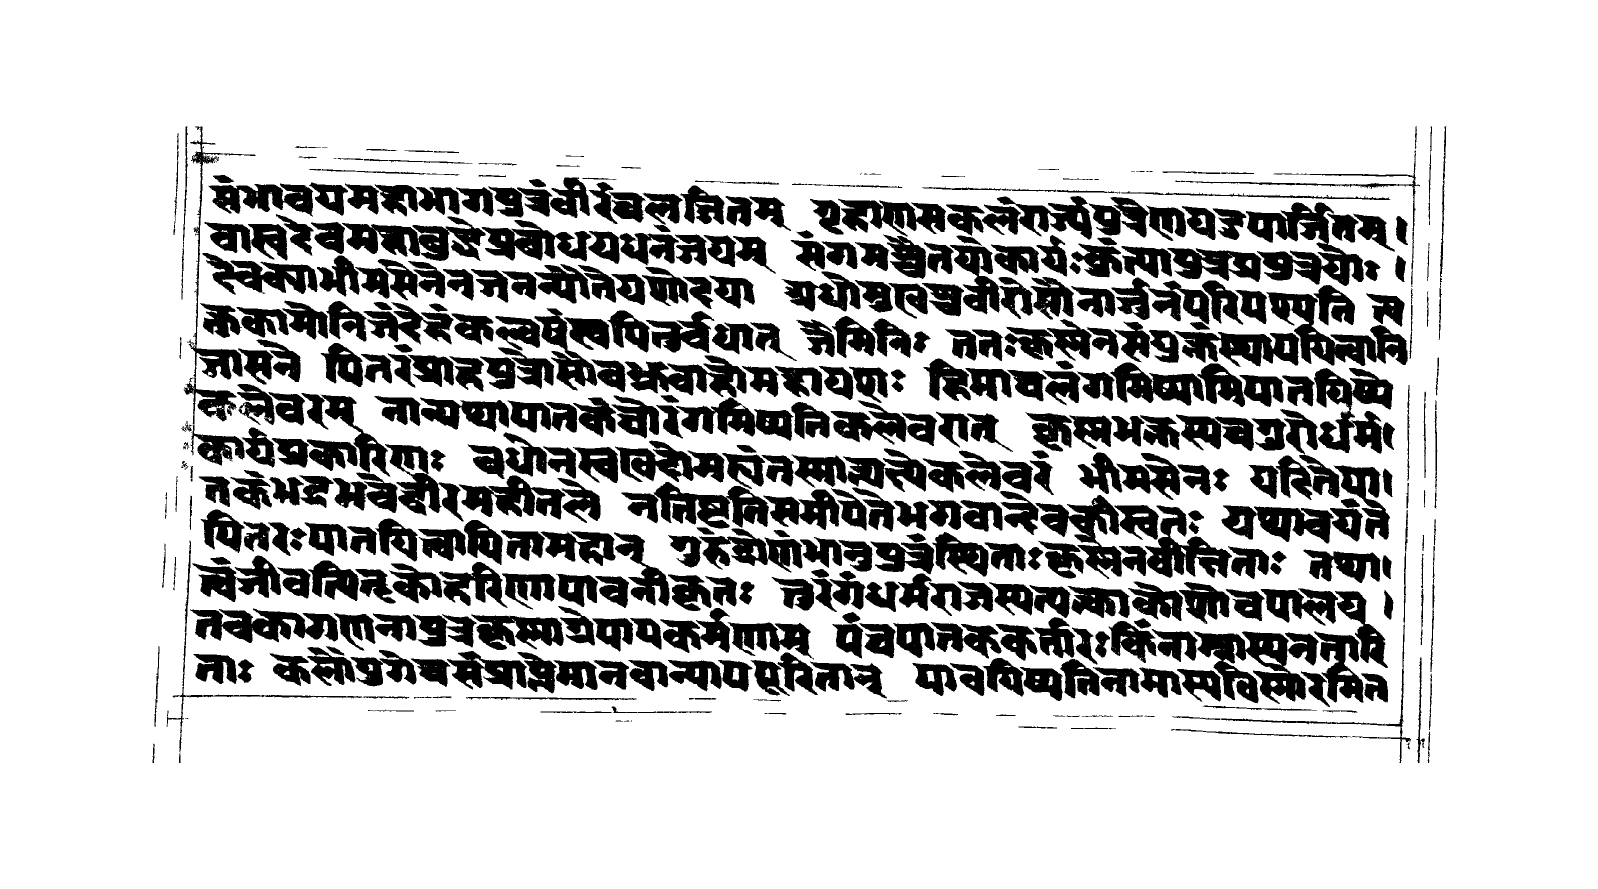 संभावयमहाभागपुत्रंवीरंबलान्वितम् गृहाणसकलंराज्यंपुत्रेणायउपार्जितम्।
वासुदेवमहाबुद्धेप्रबोधयधनंजयम् संगमश्चैतयोकार्यःक्रुंत्यापुत्रप्रपुत्रयोः ।
देवक्याभीमसेनेनजनन्यातेयशोदया अधोमुखःप्रवीरोसौनार्जुनंपरिपश्यति त्य
क्तकामोनिजंदेहंकल्मषंस्वपितुर्वधात् जैमिनिः ततःकृस्मेनसंयुक्तंस्थापयित्वानि
जासने पितरंप्राहपुत्रोसौबभ्रुवाहोमहायशाः हिमाचलंगमिष्यामिपातयिष्ये
कलेवरम् नान्यथापातकंघोरंगमिष्यतिकलेवरात् कृस्मभक्तस्यचगुरोर्धर्म।
कार्यप्रकारिणाः वधोनसुखावहोमह्यंतस्मात्यक्ष्येकलेवरं भीमसेनः परितेपा।
तकंभद्रभवेद्वीरमहीतले नतिष्टतिसमीपेतेभगवान्देवकीसुतः यथावयंते
पितरःपातयित्वापितामहान् गुरुंद्रोणंभानुपुत्रंस्थिताःकृस्मेनवीक्षिताः तथा।
त्वंजीवत्पितृकोहरिणापावनीकृतः तुरंगंधर्मराजस्यत्यक्त्वाकोशोवपालय ।
तवकागणनापुत्रकृस्माग्रेपापकर्मणाम् पंचपातककर्तारःकिंनाम्नास्यनतारि
ताः कलौयुगेचसंप्राप्तेमानवान्पापपूरितान् पावयिष्यतिनामास्यविस्मारमित